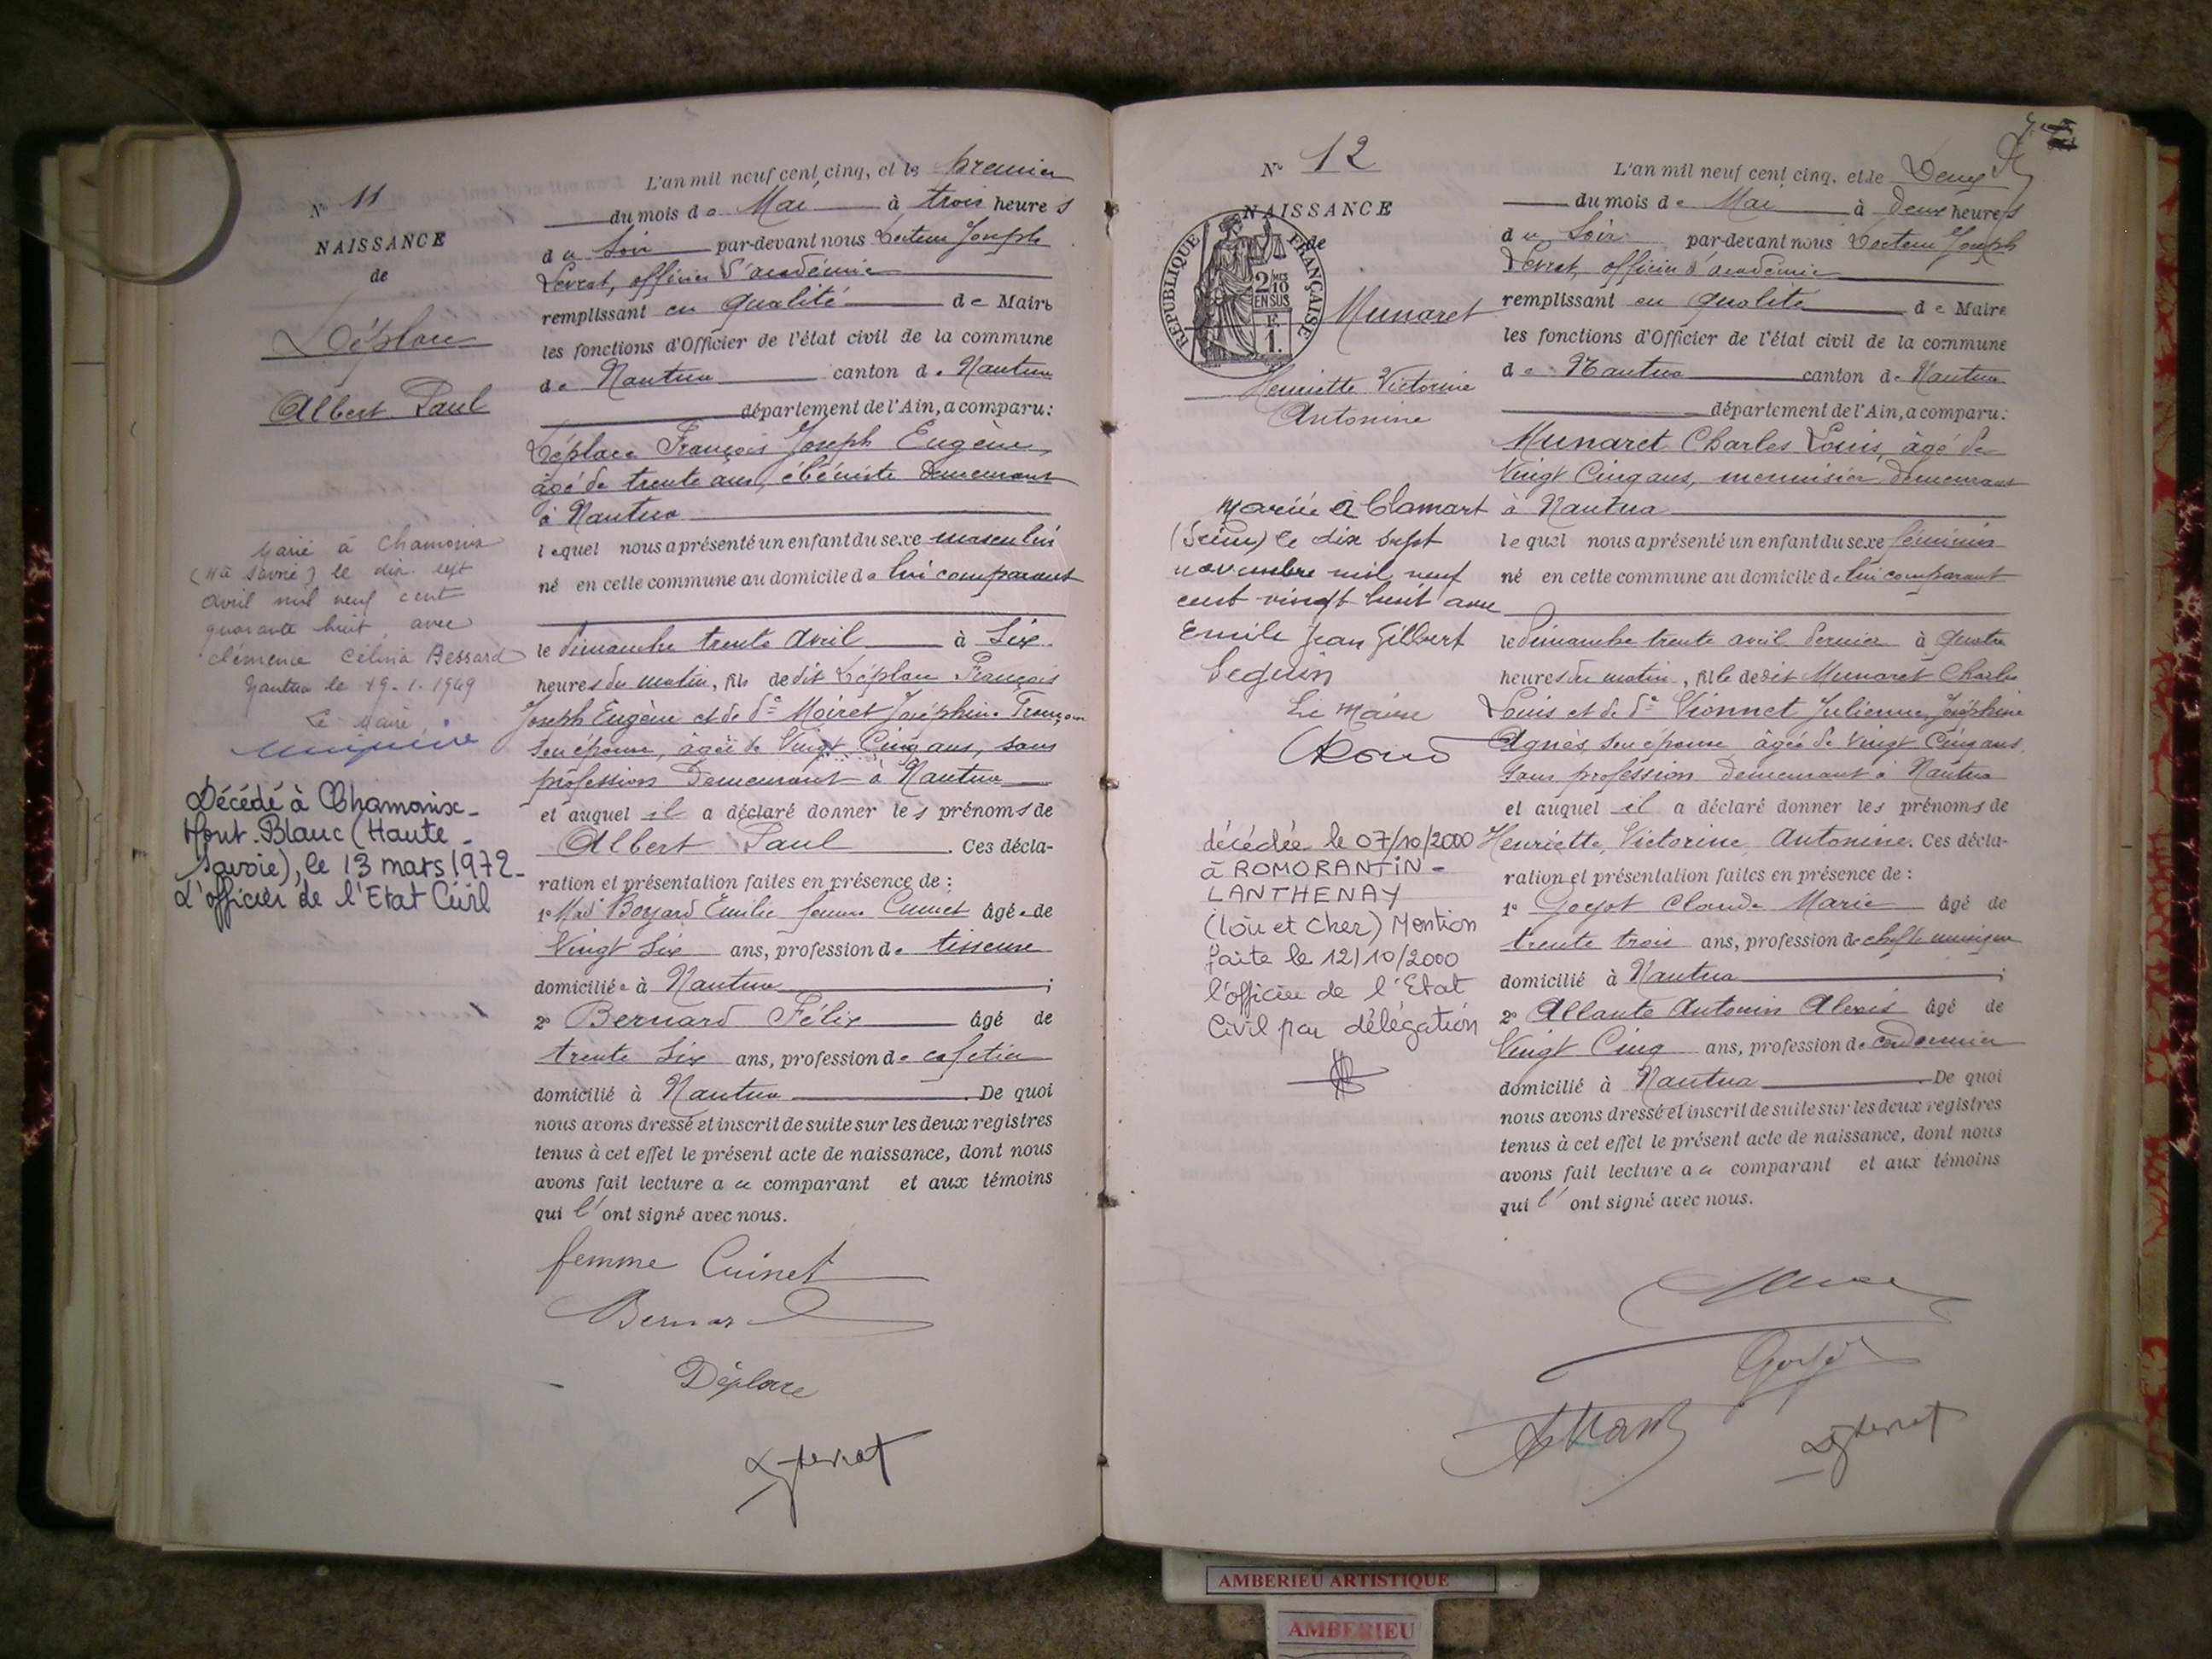 N° 11
NAISSANCE
de
Déplace
Albert Paul
Marié à Chamonix
(Hte Savoie) le dix sept
avril mil neuf cent
quarante huit, avec
Clémence Célina Bessard
Nantua le 19-1-1949
Le Maire,
Décédé à Chamonix-
Mont-Blanc (Haute-
Savoie), le 13 mars 1972-
L'officier de l'Etat Civil
L'an mil neuf cent cinq, et le premier
du mois de Mai à trois heures
du soir par-devant nous Docteur Joseph
Levrat, officier d'académie
remplissant en qualité de Maire
les fonctions d'Officier de l'état civil de la commune
de Nantua canton de Nantua
département de l'Ain, a comparu:
Déplace François Joseph Eugène,
âgé de trente ans, ébéniste demeurant
à Nantua
lequel nous a présenté un enfant du sexe masculin
né en cette commune au domicile de lui comparant
le dimanche trente avril à six
heures du matin, fils de dit Déplace François
Joseph Eugène et de de Moiret Joséphine Françoise
son épouse, âgée de vingt cinq ans, sans
profession demeurant à Nantua
et auquel il a déclaré donner les prénoms de
Albert Paul. Ces décla-
ration et présentation faites en présence de :
1° Mad. Boyard Emilie femme Cuinet âgée de
vingt six ans, profession de tisseuse
domiciliée à Nantua ;
2° Bernard Félix âgé de
trente six ans, profession de cafetier
domicilié à Nantua. De quoi
nous avons dressé et inscrit de suite sur les deux registres
tenus à cet effet le présent acte de naissance, dont nous
avons fait lecture au comparant et aux témoins
qui l'ont signé avec nous.
femme Cuinet
Bernard
Déplace
Levrat
N° 12
NAISSANCE
de
REPUBLIQUE FRANÇAISE
2/10 EN SUS
F.
1.
Munaret
Henriette Victorine
Antonine
Mariée à Clamart
(Seine) le dix sept
novembre mil neuf
cent vingt huit avec
Emile Jean Gilbert
Seguin
Le Maire
décédée le 07/10/2000
à ROMORANTIN-
LANTHENAY
(Loir et Cher) Mention
faite le 12/10/2000
l'officier de l'Etat
Civil par délégation
L'an mil neuf cent cinq, et le Deux
du mois de Mai à deux heures
du soir par-devant nous Docteur Joseph
Levrat, officier d'académie
remplissant en qualité de Maire
les fonctions d'Officier de l'état civil de la commune
de Nantua canton de Nantua
département de l'Ain, a comparu:
Munaret Charles Louis, âgé de
vingt cinq ans, menuisier demeurant
à Nantua
lequel nous a présenté un enfant du sexe féminin
né en cette commune au domicile de lui comparant
le dimanche trente avril dernier à quatre
heures du matin, fille de dit Munaret Charles
Louis et de de Vionnet Julienne Joséphine
Agnès son épouse âgée de vingt cinq ans,
sans profession demeurant à Nantua
et auquel il a déclaré donner les prénoms de
Henriette, Victorine, Antonine. Ces décla-
ration et présentation faites en présence de :
1° Goyot Claude Marie âgé de
trente trois ans, profession de chef de musique
domicilié à Nantua ;
2° Allante Antonin Alexis âgé de
vingt cinq ans, profession de cordonnier
domicilié à Nantua. De quoi
nous avons dressé et inscrit de suite sur les deux registres
tenus à cet effet le présent acte de naissance, dont nous
avons fait lecture au comparant et aux témoins
qui l'ont signé avec nous.
Levrat
AMBERIEU ARTISTIQUE
AMBERIEU